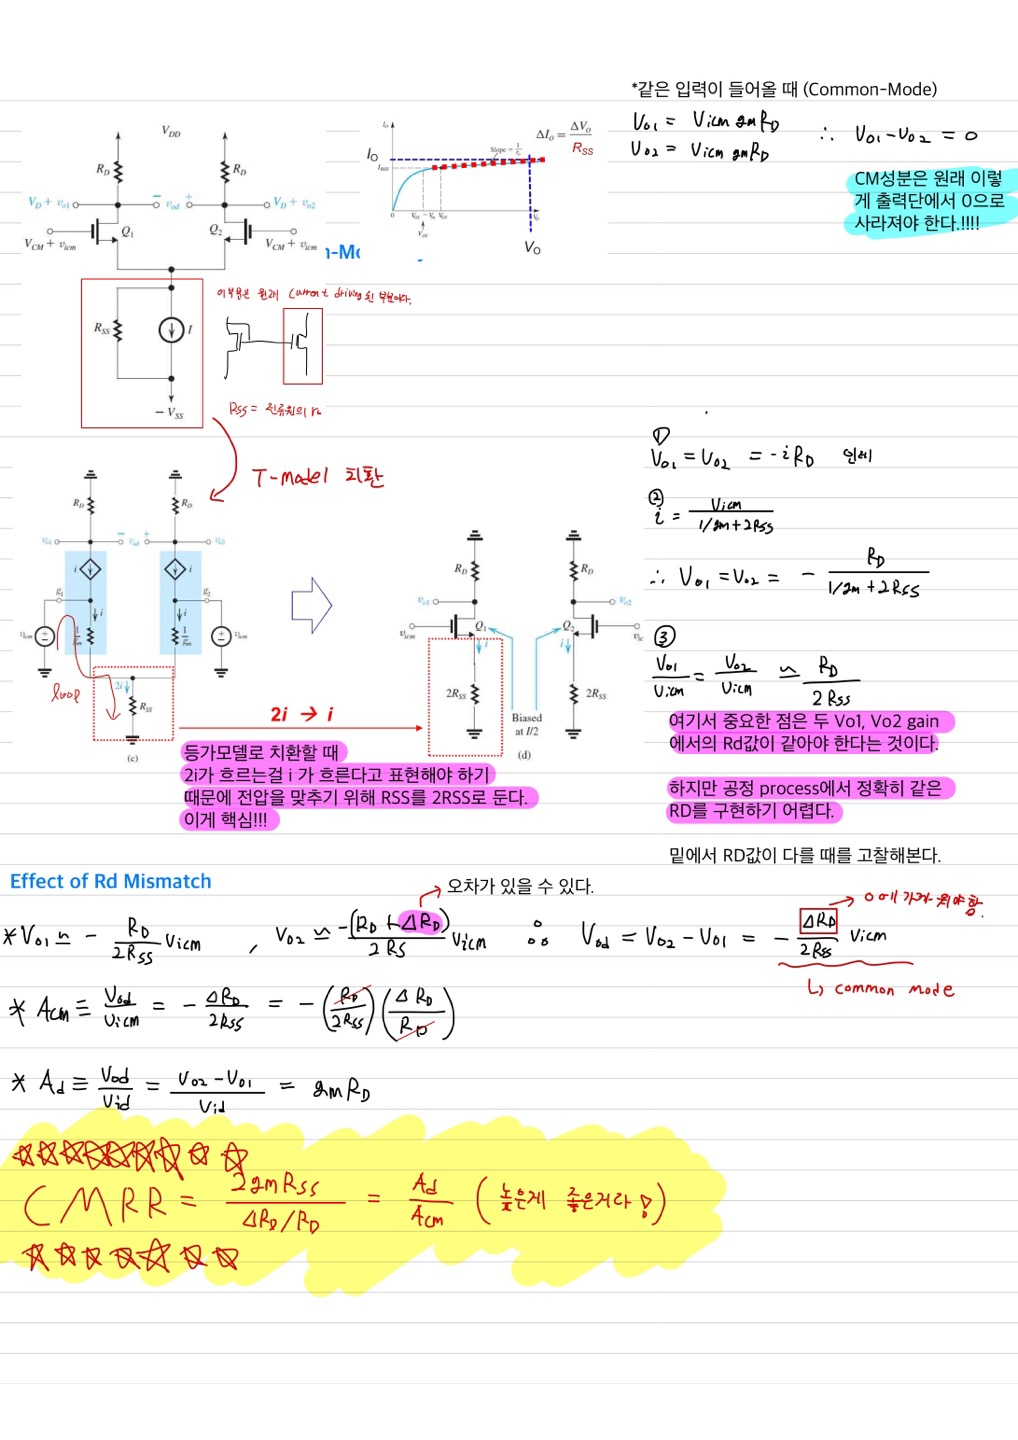 *같은 입력이 들어올 때 (Common-Mode)
Vo1 = Vicm gm RD
Vo2 = Vicm gm RD
∴ Vo1 - Vo2 = 0
CM성분은 원래 이렇
게 출력단에서 0으로
사라져야 한다.!!!!
VDD
RD RD
VD + vo1 − vod + VD + vo2
Q1 Q2
VCM + vicm VCM + vicm
RSS I
− VSS
Io
IO
Slope = 1/ro
ΔIo = ΔVo / RSS
0
Vo
VO
n-Mo
이부분은 원래 Current driving 된 부분이다.
RSS = 전류원의 ro
T-model 치환
RD RD
vo1 − vod + vo2
i i
g1 g2
i i
vicm 1/gm 1/gm vicm
loop
2i
RSS
(c)
2i → i
RD RD
vo1 vo2
vicm Q1 Q2 vic
i i
2RSS 2RSS
Biased
at I/2
(d)
등가모델로 치환할 때
2i가 흐르는걸 i 가 흐른다고 표현해야 하기
때문에 전압을 맞추기 위해 RSS를 2RSS로 둔다.
이게 핵심!!!
①
Vo1 = Vo2 = -i RD 인데
②
i = Vicm / (1/gm + 2RSS)
∴ Vo1 = Vo2 = - RD / (1/gm + 2RSS)
③
Vo1/Vicm = Vo2/Vicm ≃ RD / 2RSS
여기서 중요한 점은 두 Vo1, Vo2 gain
에서의 Rd값이 같아야 한다는 것이다.
하지만 공정 process에서 정확히 같은
RD를 구현하기 어렵다.
밑에서 RD값이 다를 때를 고찰해본다.
Effect of Rd Mismatch
오차가 있을 수 있다.
* Vo1 ≃ - RD/2RSS Vicm , Vo2 ≃ -(RD + ΔRD)/2RS Vicm ∴ Vod = Vo2 - Vo1 = - ΔRD/2RSS Vicm
→ 0에 가까워야함.
↳ common mode
* Acm ≡ Vod/Vicm = - ΔRD/2RSS = -(RD/2RSS)(ΔRD/RD)
* Ad ≡ Vod/Vid = (Vo2 - Vo1)/Vid = gm RD
CMRR = 2gmRSS / (ΔRD/RD) = Ad/Acm (높은게 좋은거라!)